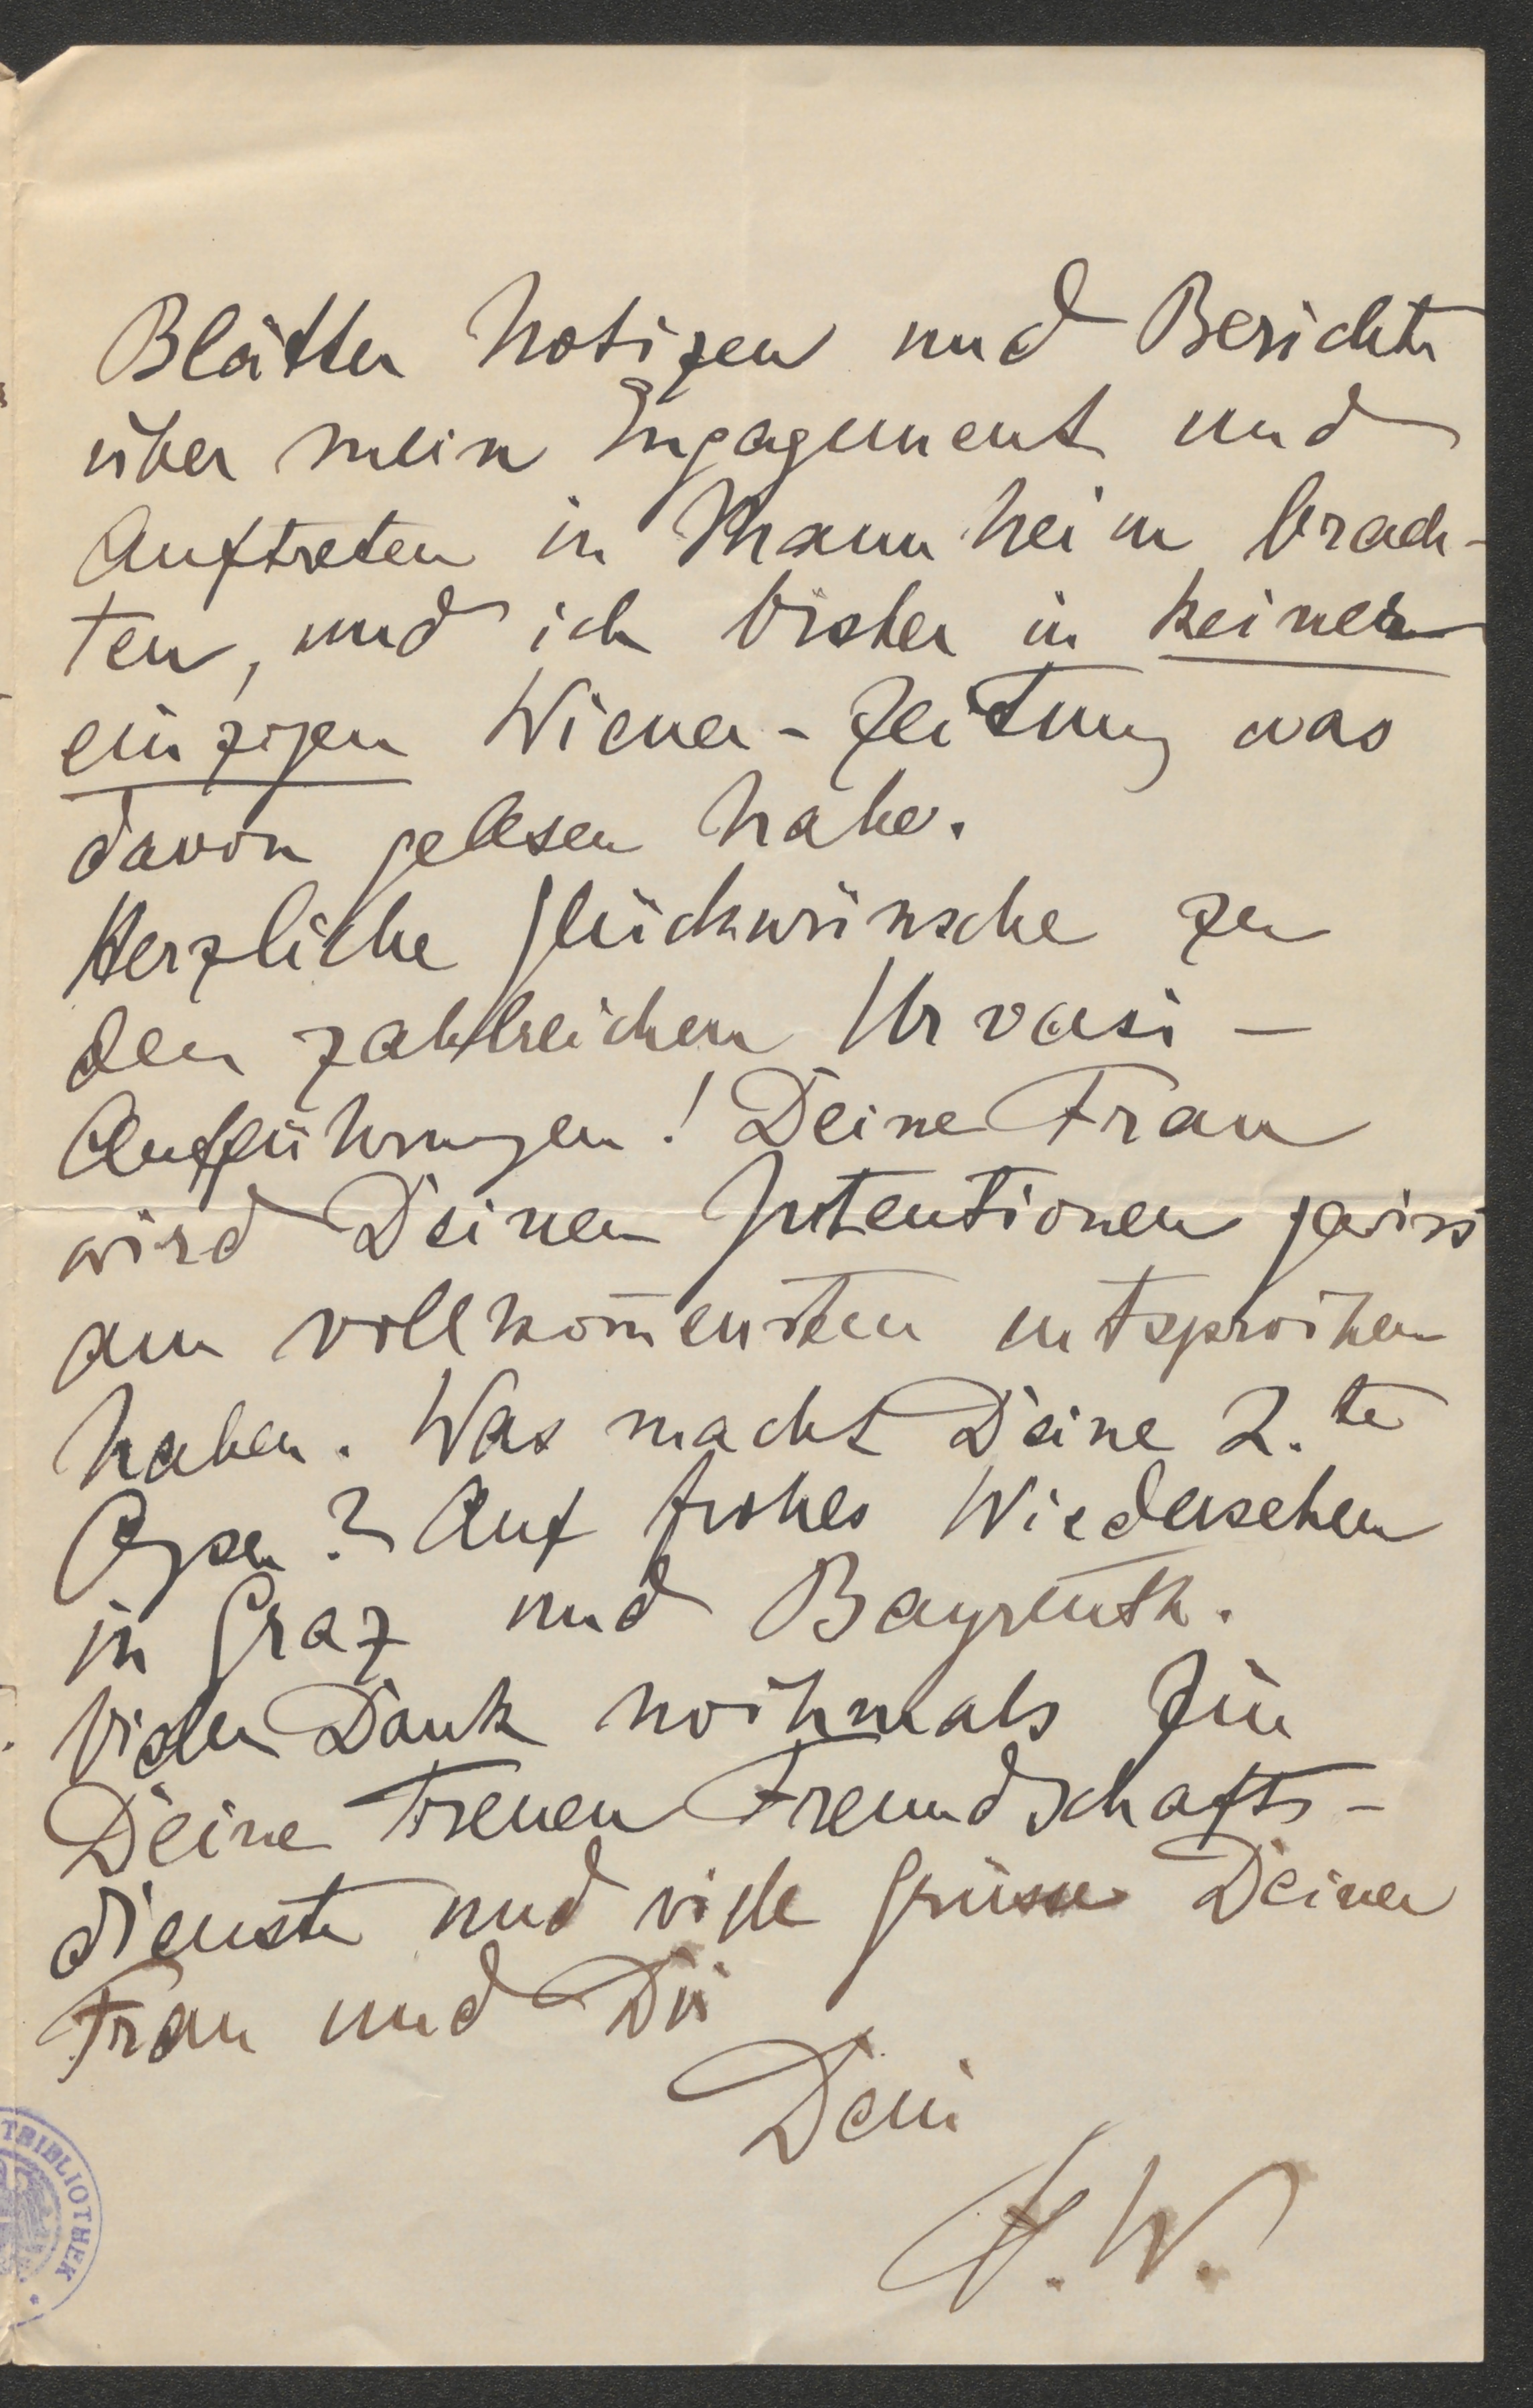 Blätter Notizen und Berichte
über mein Engagement und
Auftreten in Mannheim brach-
ten, und ich bisher in keiner
einzigen Wiener-Zeitung was
davon gelesen habe.
Herzliche Glückwünsche zu
den zahlreichen Urvasi-
Aufführungen! Deine Frau
wird Deinen Intentionen gewiss
am vollkom̄ensten entsprochen
haben. Was macht Deine 2.te
Oper? Auf frohes Wiedersehen
in Graz und Bayreuth.
Vielen Dank nochmals für
Deine treuen Freundschafts-
dienste und viele Grüsse Deiner
Frau und Dir
Dein
H.W.
TBIBLIOTHEK